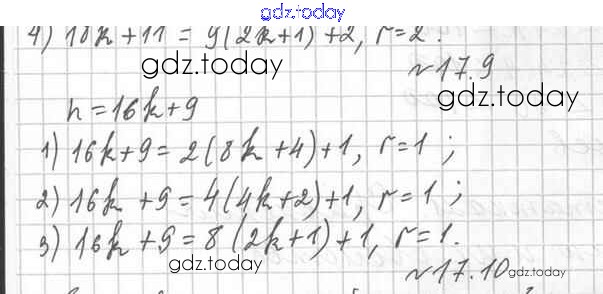 gdz.today
4) 18k+11 = 9(2k+1)+2, r=2.
gdz.today
№17.9
gdz.today
n=16k+9
1) 16k+9=2(8k+4)+1, r=1;
2) 16k+9=4(4k+2)+1, r=1;
3) 16k+9=8(2k+1)+1, r=1.
gdz.today
№17.10
gdz.today